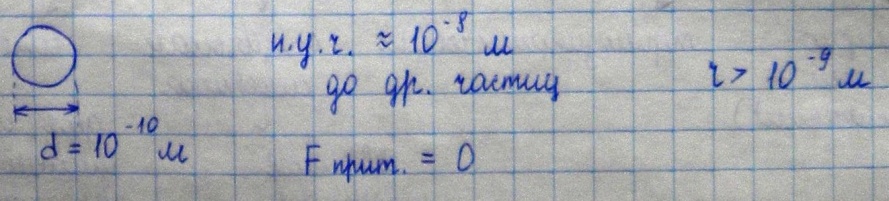 н.у.ч. ≈ 10⁻⁸ м
до др. частиц
r > 10⁻⁹ м
d = 10⁻¹⁰ м
F прит. = 0